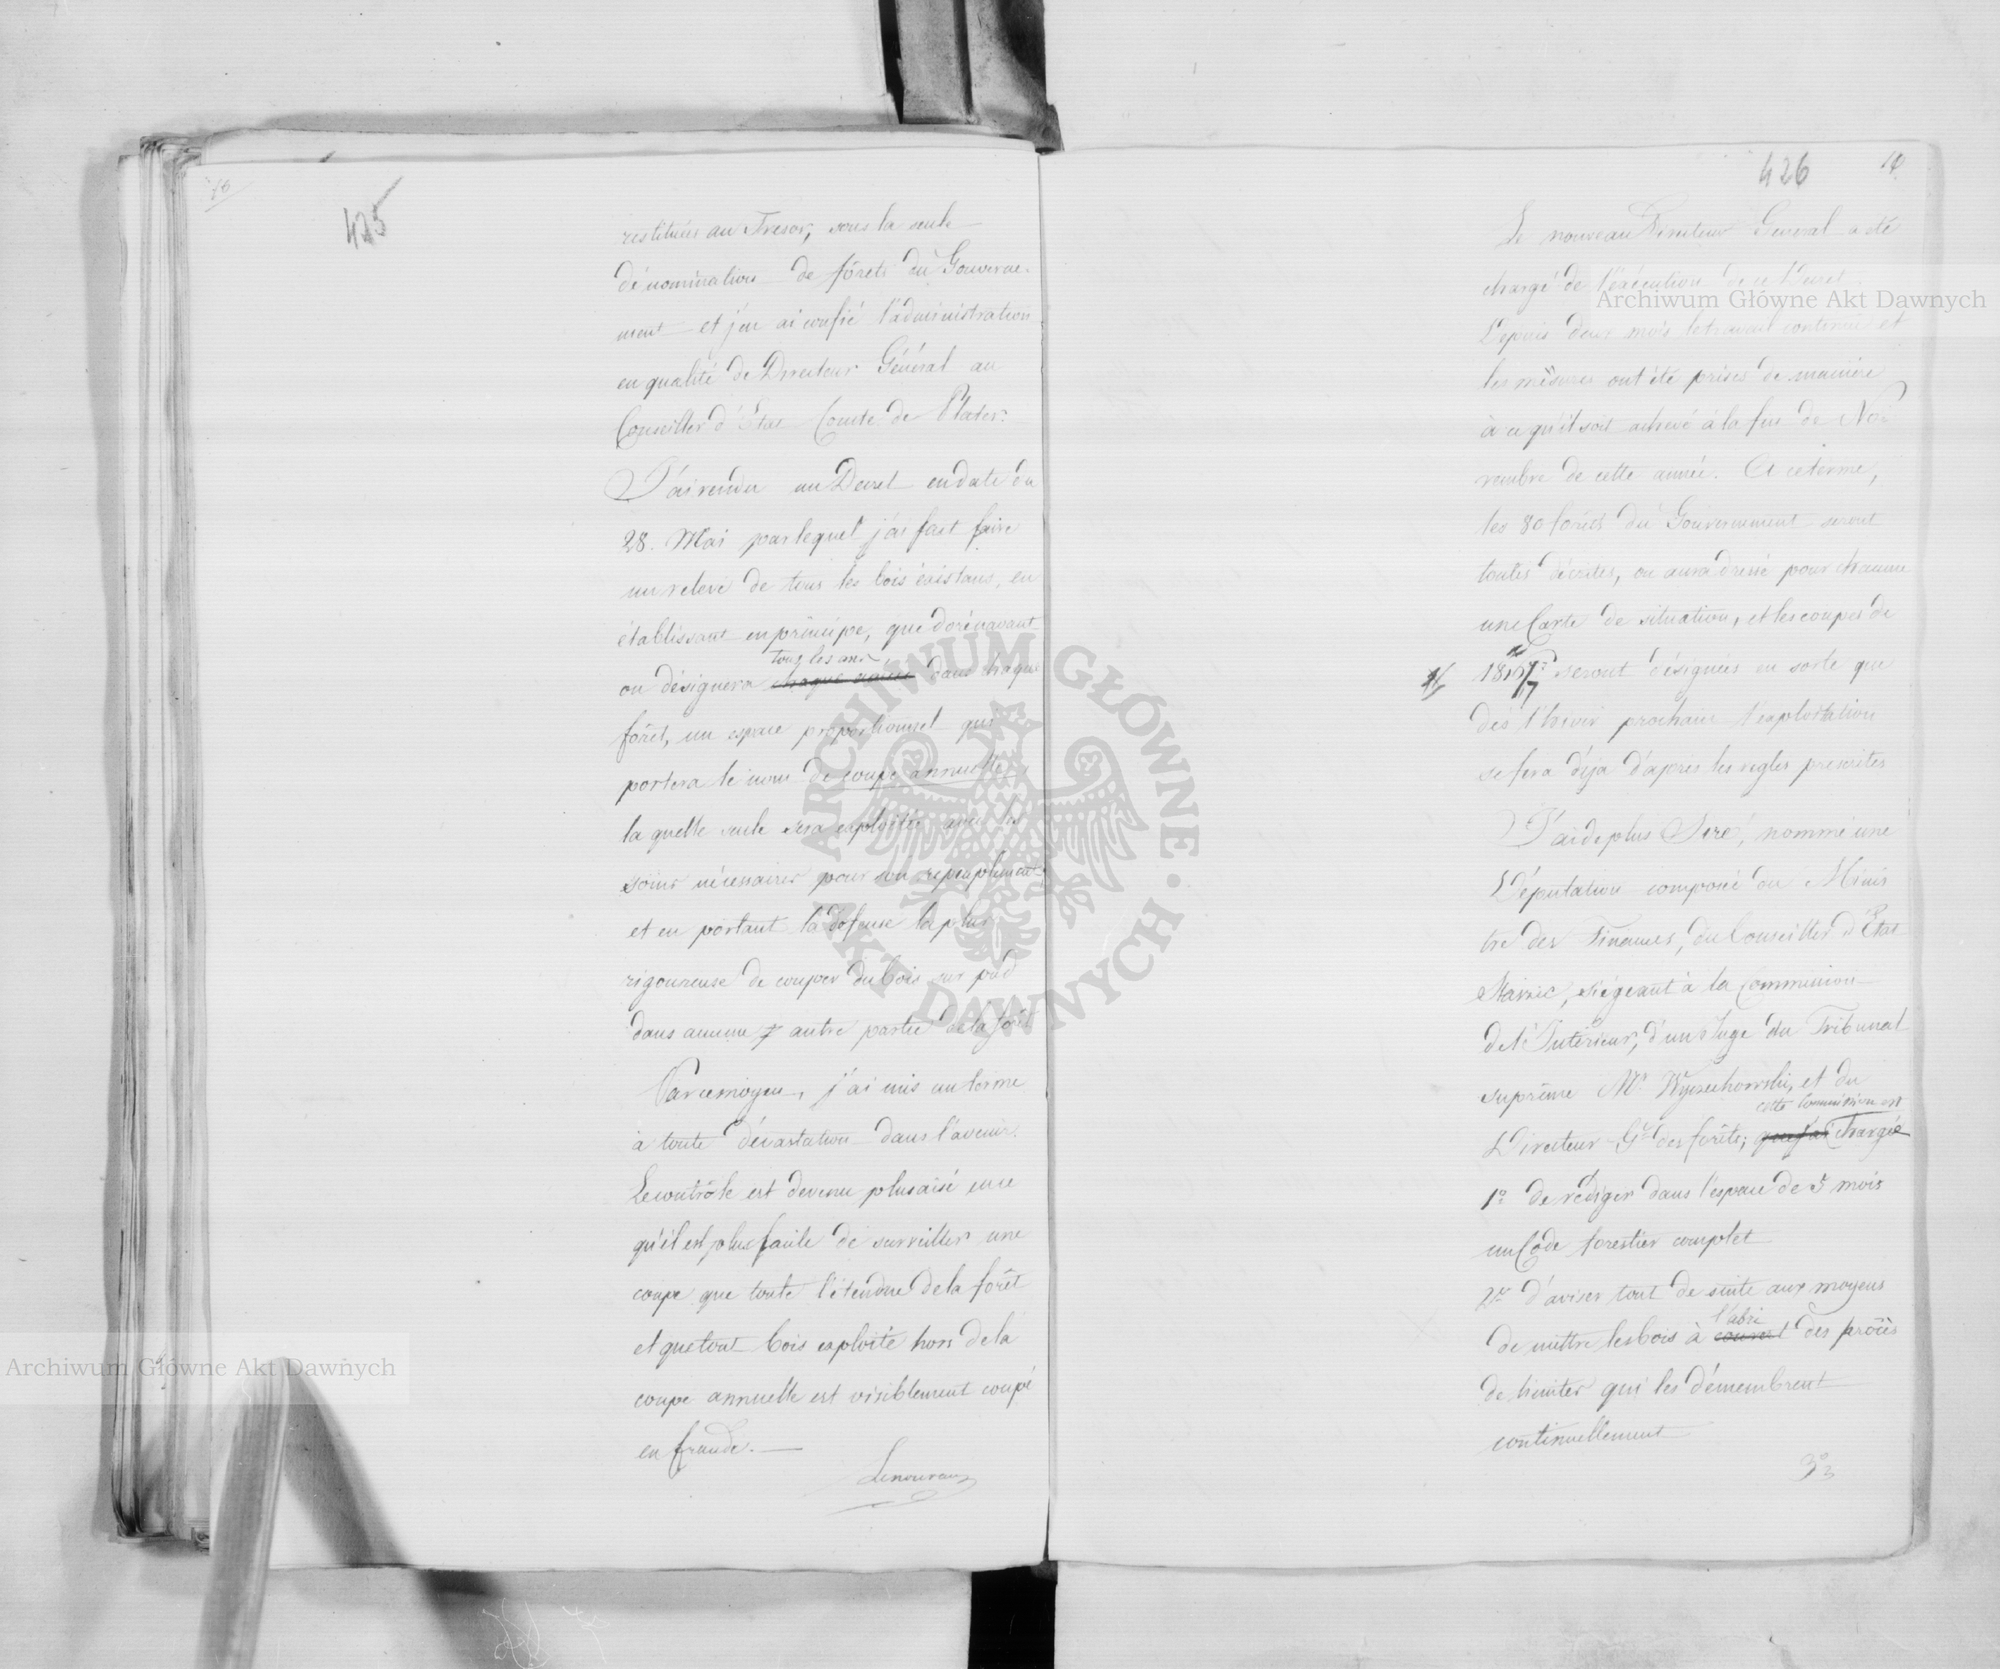 425
restituées au Tresor, sous la seule
dénomination de fôrets du Gouverne-
ment et j'en ai confié l'administration
en qualité de Directeur Général au
Conseiller d'Etat Comte de Plater.
J'ai rendu un Decret en date du
28. Mai par lequel j'ai fait faire
un relevé de tous les bois éxistans, en
établissant en principe, que dorénavant
tous les ans
on désignera chaque année dans chaque
forêt, un espace proportionnel qui
portera le nom de coupe annuelle,
la quelle seule sera exploitée avec les
soins nécessaires pour son repeuplement
et en portant la défense la plus
rigoureuse de couper du bois sur pied
dans aucune autre partie de la forêt
Par ce moyen, j'ai mis un terme
à toute dévastation dans l'avenir.
Le contrôle est devenu plus aisé en ce
qu'il est plus facile de surveiller une
coupe que toute l'étendue de la forêt
et que tout bois exploité hors de la
coupe annuelle est visiblement coupé
en fraude. —
Le nouveau
426
Le nouveau Directeur General a été
chargé de l'éxécution de ce Decret
Depuis deux mois le travail continue et
les mésures ont été prises de manière
à ce qu'il soit achevé à la fin de No-
vembre de cette année. A ce terme,
les 80 forêts du Gouvernement seront
toutes décrites, on aura dressé pour chacune
une Carte de situation, et les coupes de
1816/17 seront désignées en sorte que
dès l'hiver prochain l'exploitation
se fera déja d'après les regles prescrites
J'ai de plus Sire, nommé une
Députation composée du Minis
tre des Finances, du Conseiller d'Etat
Staszic, siégeant à la Commission
de l'Intérieur, d'un Juge du Tribunal
suprême Mr. Wyczechowski, et du
cette Commission est
Directeur Gal des forêts; que j'ai chargée
1o de rédiger dans l'espace de 5 mois
un Code forestier complet
2o d'aviser tout de suite aux moyens
l'abri
de mettre les bois à couvert des procès
de limites qui les démembrent
continuellement
3o
Archiwum Główne Akt Dawnych
Archiwum Główne Akt Dawnych
ARCHIWUM GŁÓWNE · AKT DAWNYCH ·